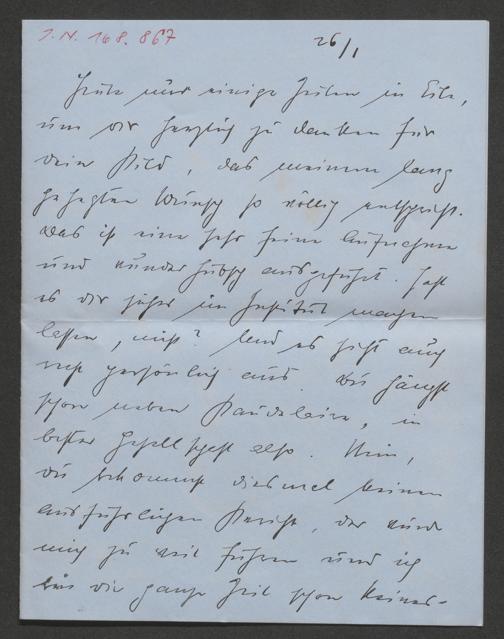 I.N. 168.867
26/I
Heute nur einige Zeilen in Eile,
um dir herzlich zu danken für
dein Bild, das meinem lang
gehegten Wunsch so völlig entspricht.
Das ist eine sehr feine Aufnahme
und wunderhübsch ausgeführt. Hast
es dir sicher im Institut machen
lassen, nicht? Und es sieht auch
recht persönlich aus. Du hängst
schon neben Baudelaire, in
bester Gesellschaft also. Nein,
du bekommst diesmal keinen
ausführlichen Bericht, der würde
mich zu weit führen und ich
bin die ganze Zeit schon keines-